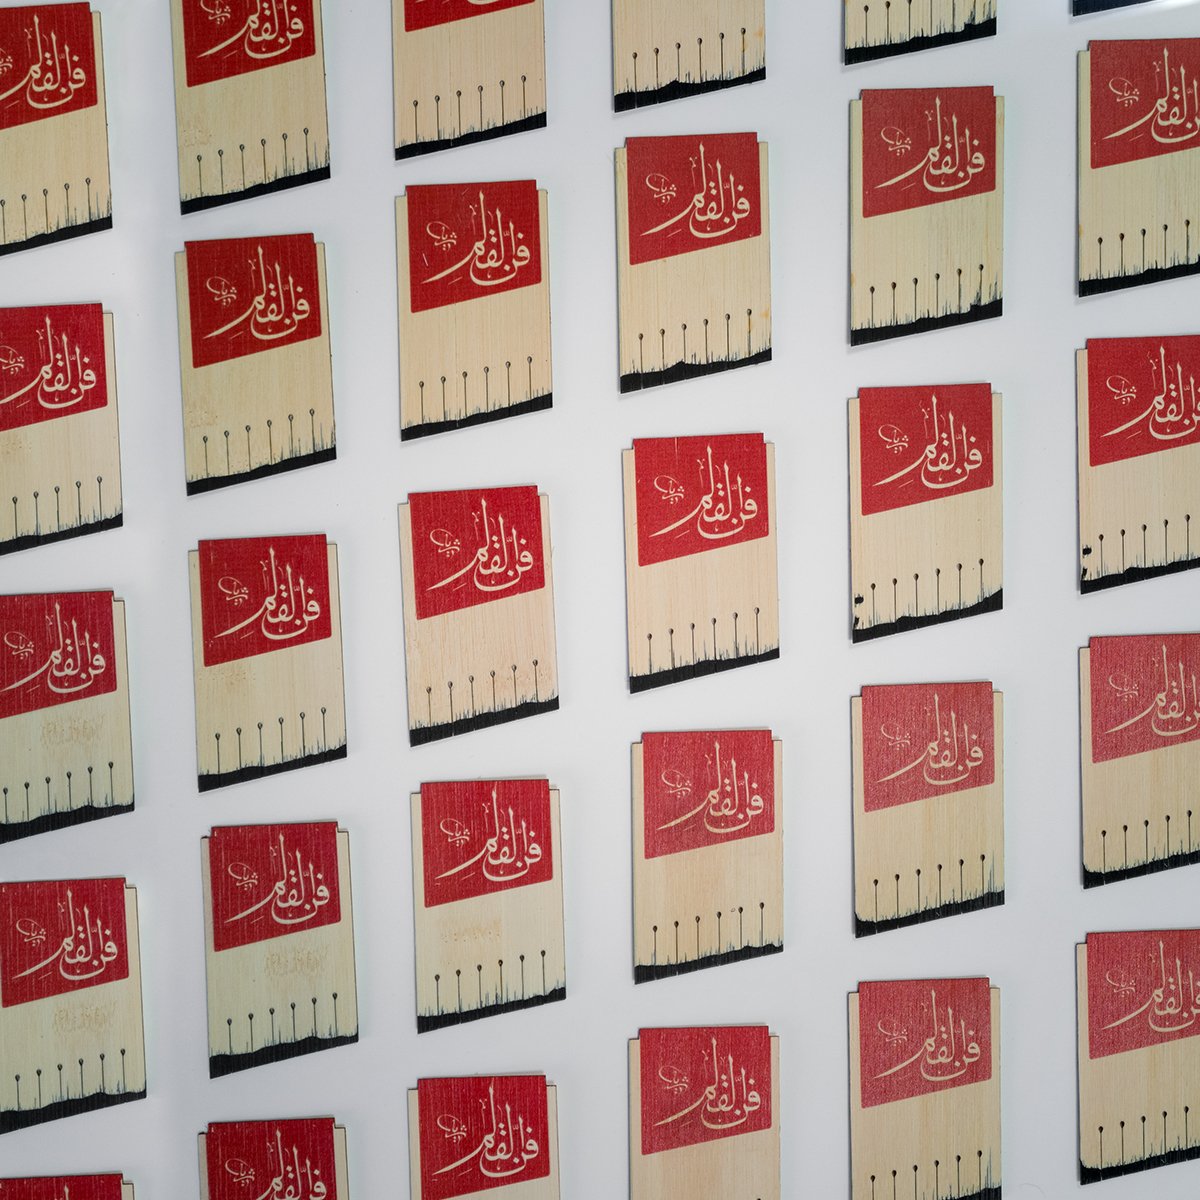 فنّ القلمِ